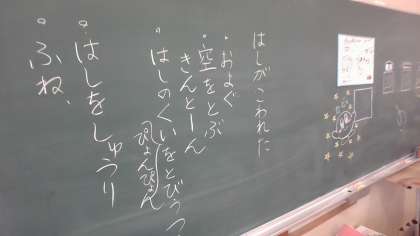 はしがこわれた
・およぐ
・空をとぶ
きんとーん
・はしのくいをとびうつ
ぴょんぴょん
・はしをしゅうり
・ふね、